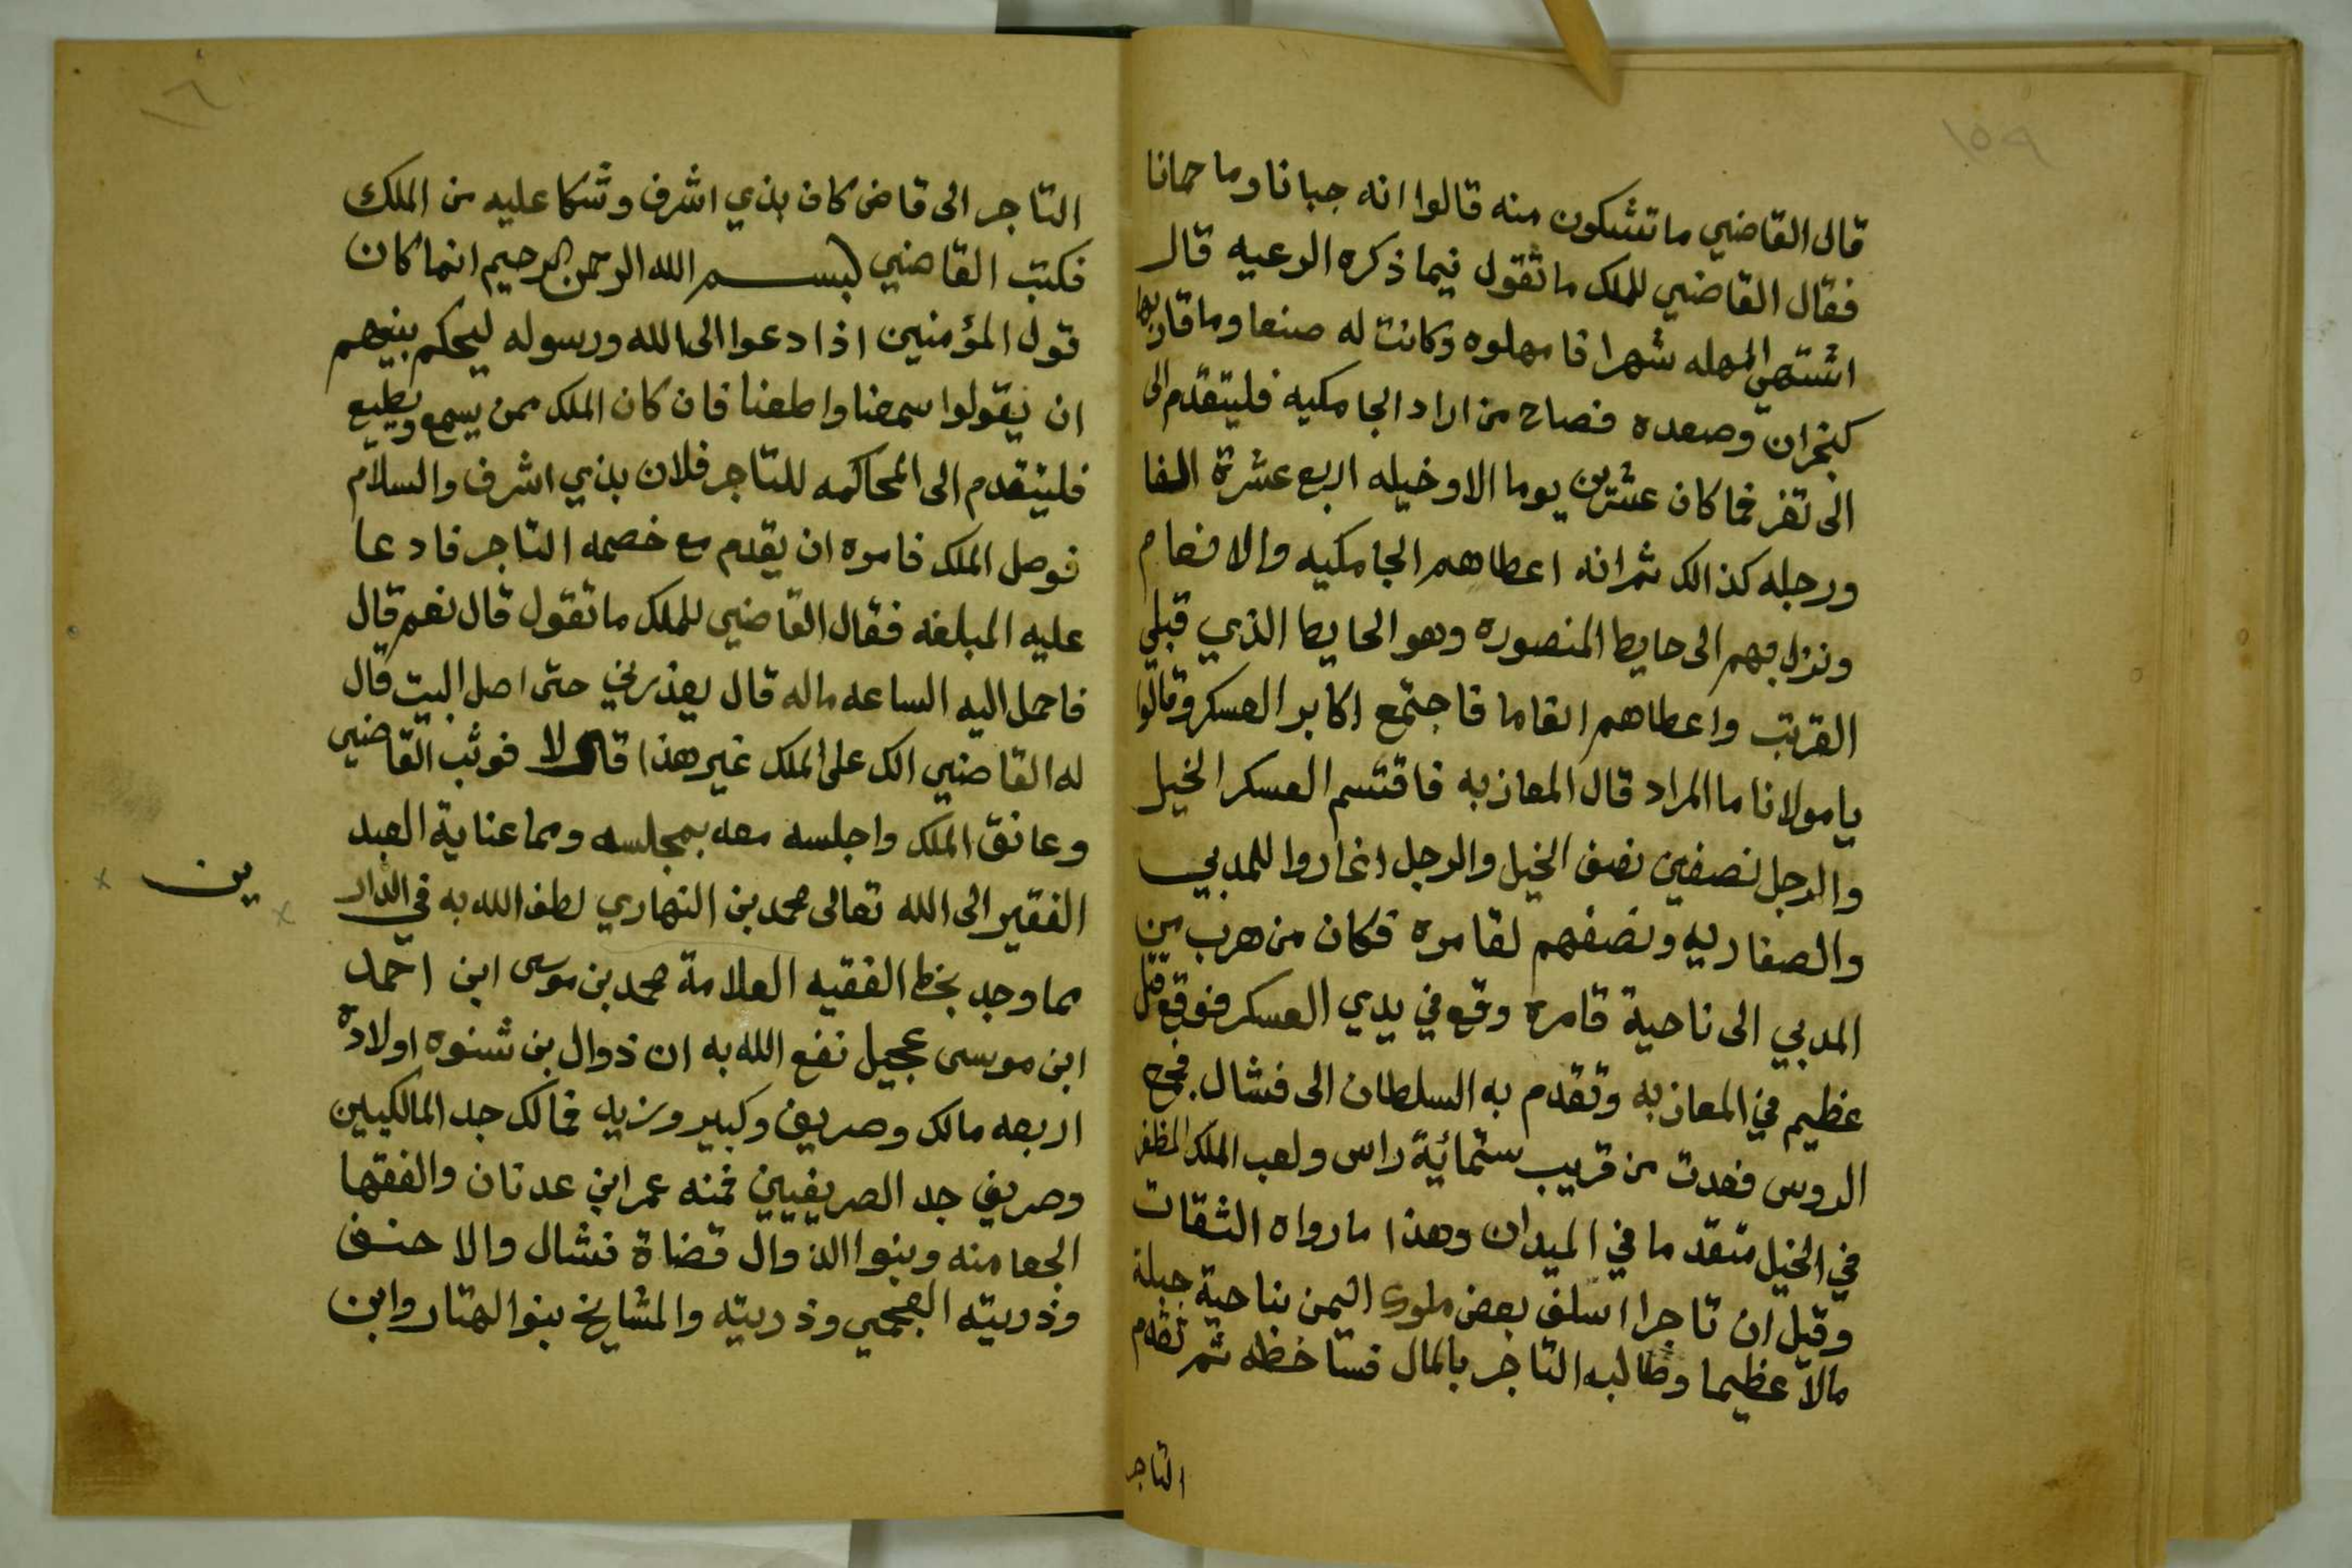 ١٥٩
قال القاضي ما تشكون منه قالوا انه جبانا وما حمانا
فقال القاضي للملك ما تقول فيما ذكره الرعيه قال
اشتهي المهله شهرا فامهلوه وكانت له صنعا وما قاربها
كنجران وصعده فصاح من اراد الجامكيه فليتقدم الى
الى تعز فما كان عشرين يوما الا وخيله اربع عشرة الفا
ورجله كذالك ثم انه اعطاهم الجامكيه والانعام
ونزل بهم الى حايط المنصوره وهو الحايط الذي قبلي
القرتب واعطاهم انعاما فاجتمع اكابر العسكر وقالوا
يا مولانا ما المراد قال المعازبه فاقتسم العسكر الخيل
والرجل نصفين نصف الخيل والرجل اغاروا للمدبي
والصفاريه ونصفهم لقامره فكان من هرب من
المدبي الى ناحية قامره وقع في يدي العسكر فوقع قتل
عظيم في المعازبه وتقدم به السلطان الى فشال فجمع
الروس فعدت من قريب ستمائة راس ولعب الملك المظفر
في الخيل متقدما في الميدان وهذا ما رواه الثقات
وقيل ان تاجرا اسلف بعض ملوك اليمن بناحية جبلة
مالا عظيما وطالبه التاجر بالمال فستاخطه ثم تقدم
التاجر
١٦٠
التاجر الى قاض كان بذي اشرف وشكا عليه من الملك
فكتب القاضي بسم الله الرحمن الرحيم انما كان
قول المؤمنين اذا دعوا الى الله ورسوله ليحكم بينهم
ان يقولوا سمعنا واطعنا فان كان الملك ممن يسمع ويطيع
فليتقدم الى المحاكمه للتاجر فلان بذي اشرف والسلام
فوصل الملك فامره ان يقدم مع خصمه التاجر فادعا
عليه المبلغه فقال القاضي للملك ما تقول قال نعم قال
فاحمل اليه الساعه ماله قال يعذرني حتى اصل البيت قال
له القاضي الك على الملك غير هذا قال لا فوثب القاضي
وعانق الملك واجلسه معه بمجلسه ومما عناية العبد
الفقير الى الله تعالى محمد بن النهاري لطف الله به في الدار
ين
مما وجد بخط الفقيه العلامة محمد بن موسى ابن احمد
ابن موسى عجيل نفع الله به ان ذوال بن شنوه اولاده
اربعه مالك وصريف وكبير وزيد فمالك جد المالكيين
وصريف جد الصريفيين فمنه عمر ابن عدنان والفقها
الجعامنه وبنوا الذوال قضاة فشال والاحنف
وذريته الفجمي وذريته والمشايخ بنوا الهتار وابن